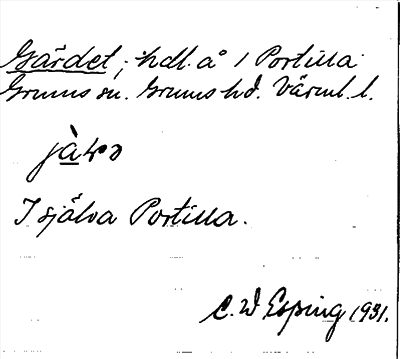 Gärdet, hdl. å 1 Portilla
Grums sn. Grums hd. Värml. l.
I själva Portilla.
C. W Esping 1931.